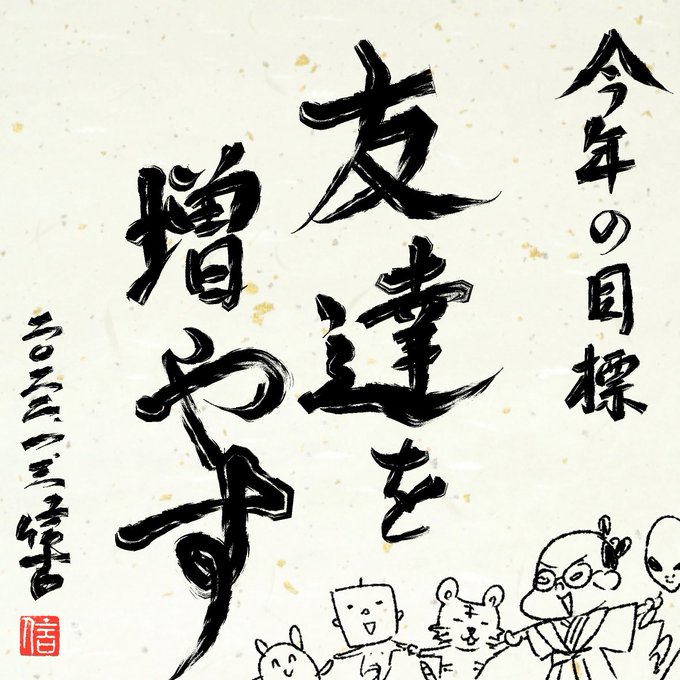 今年の目標
友達を
増やす
二〇二二、一、三
信吉
信